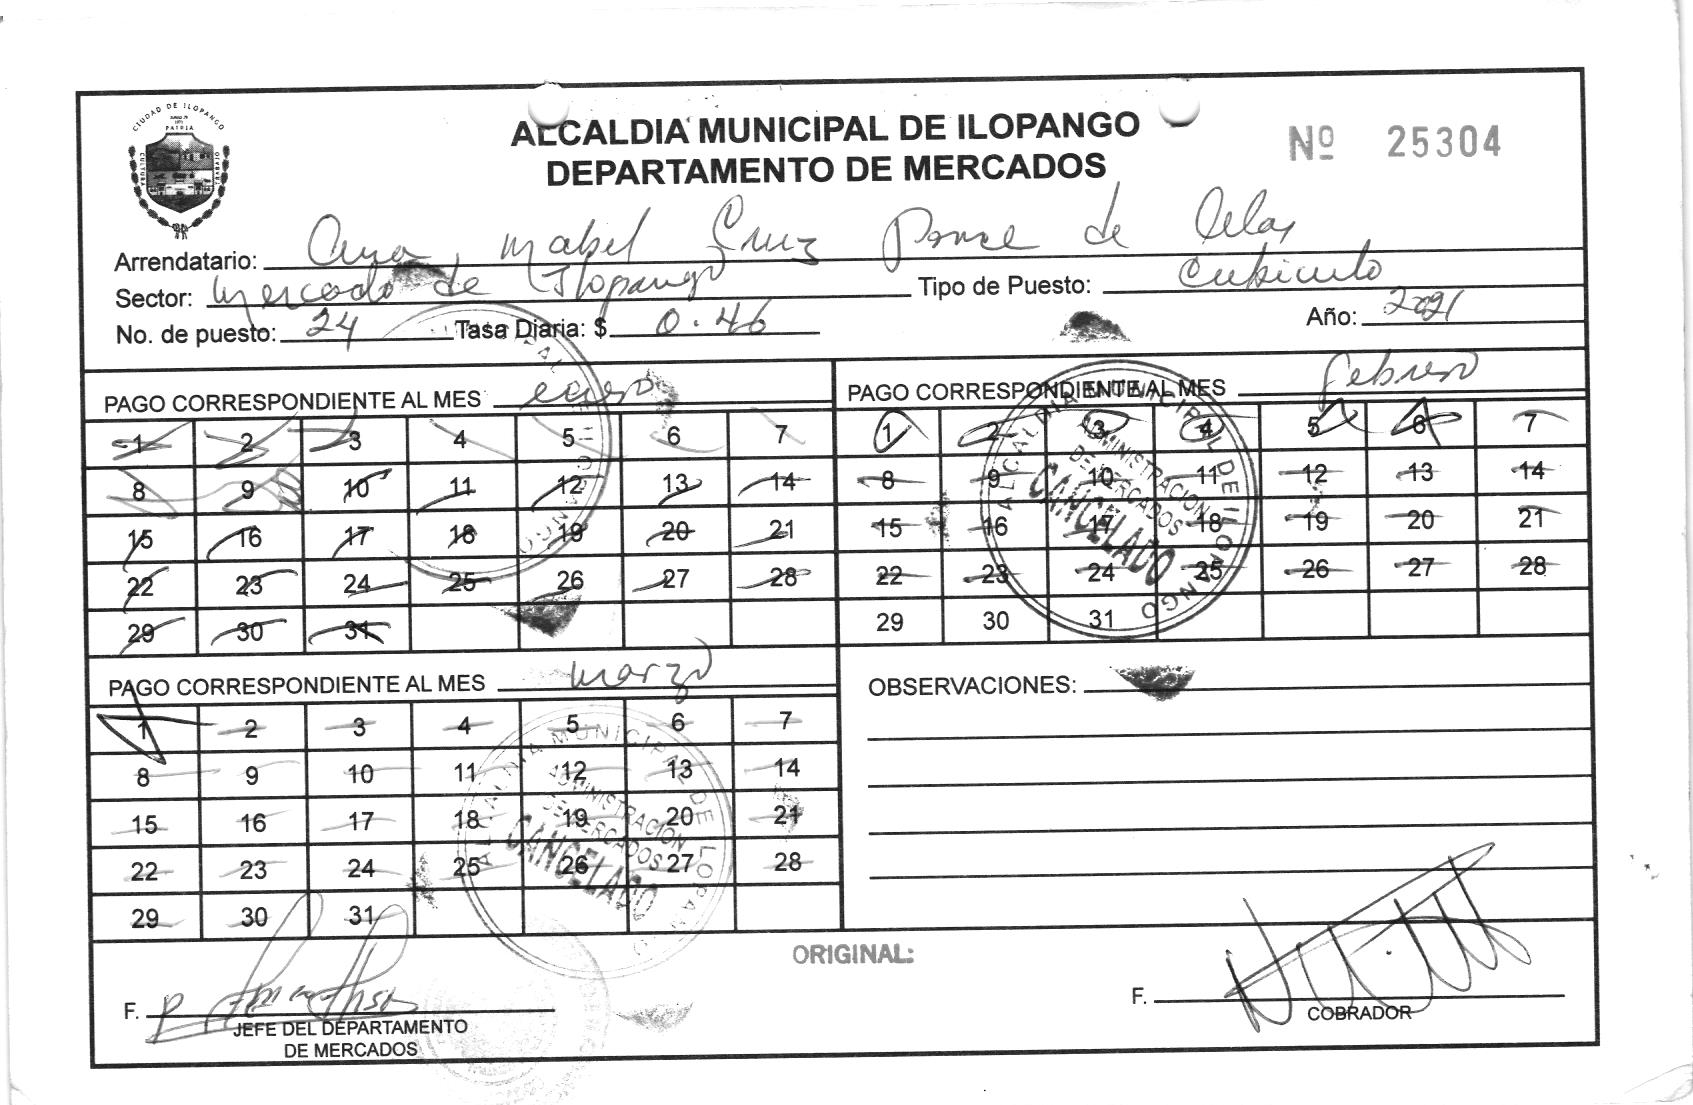 CIUDAD DE ILOPANGO
PATRIA
CULTURA
TRABAJO
ALCALDIA MUNICIPAL DE ILOPANGO
DEPARTAMENTO DE MERCADOS
Nº 25304
Arrendatario: Ana Mabel Cruz Ponce de
Sector: Mercado de Ilopango Tipo de Puesto: Cubiculo
No. de puesto: 24 Tasa Diaria: $ 0.46 Año: 2021
PAGO CORRESPONDIENTE AL MES enero
1 2 3 4 5 6 7
8 9 10 11 12 13 14
15 16 17 18 19 20 21
22 23 24 25 26 27 28
29 30 31
PAGO CORRESPONDIENTE AL MES febrero
1 2 3 4 5 6 7
8 9 10 11 12 13 14
15 16 17 18 19 20 21
22 23 24 25 26 27 28
29 30 31
ALCALDIA MUNICIPAL DE ILOPANGO
ADMINISTRACION
DE MERCADOS
CANCELADO
PAGO CORRESPONDIENTE AL MES marzo
1 2 3 4 5 6 7
8 9 10 11 12 13 14
15 16 17 18 19 20 21
22 23 24 25 26 27 28
29 30 31
ALCALDIA MUNICIPAL DE ILOPANGO
ADMINISTRACION
DE MERCADOS
CANCELADO
OBSERVACIONES:
ORIGINAL:
F.
JEFE DEL DEPARTAMENTO
DE MERCADOS
F.
COBRADOR